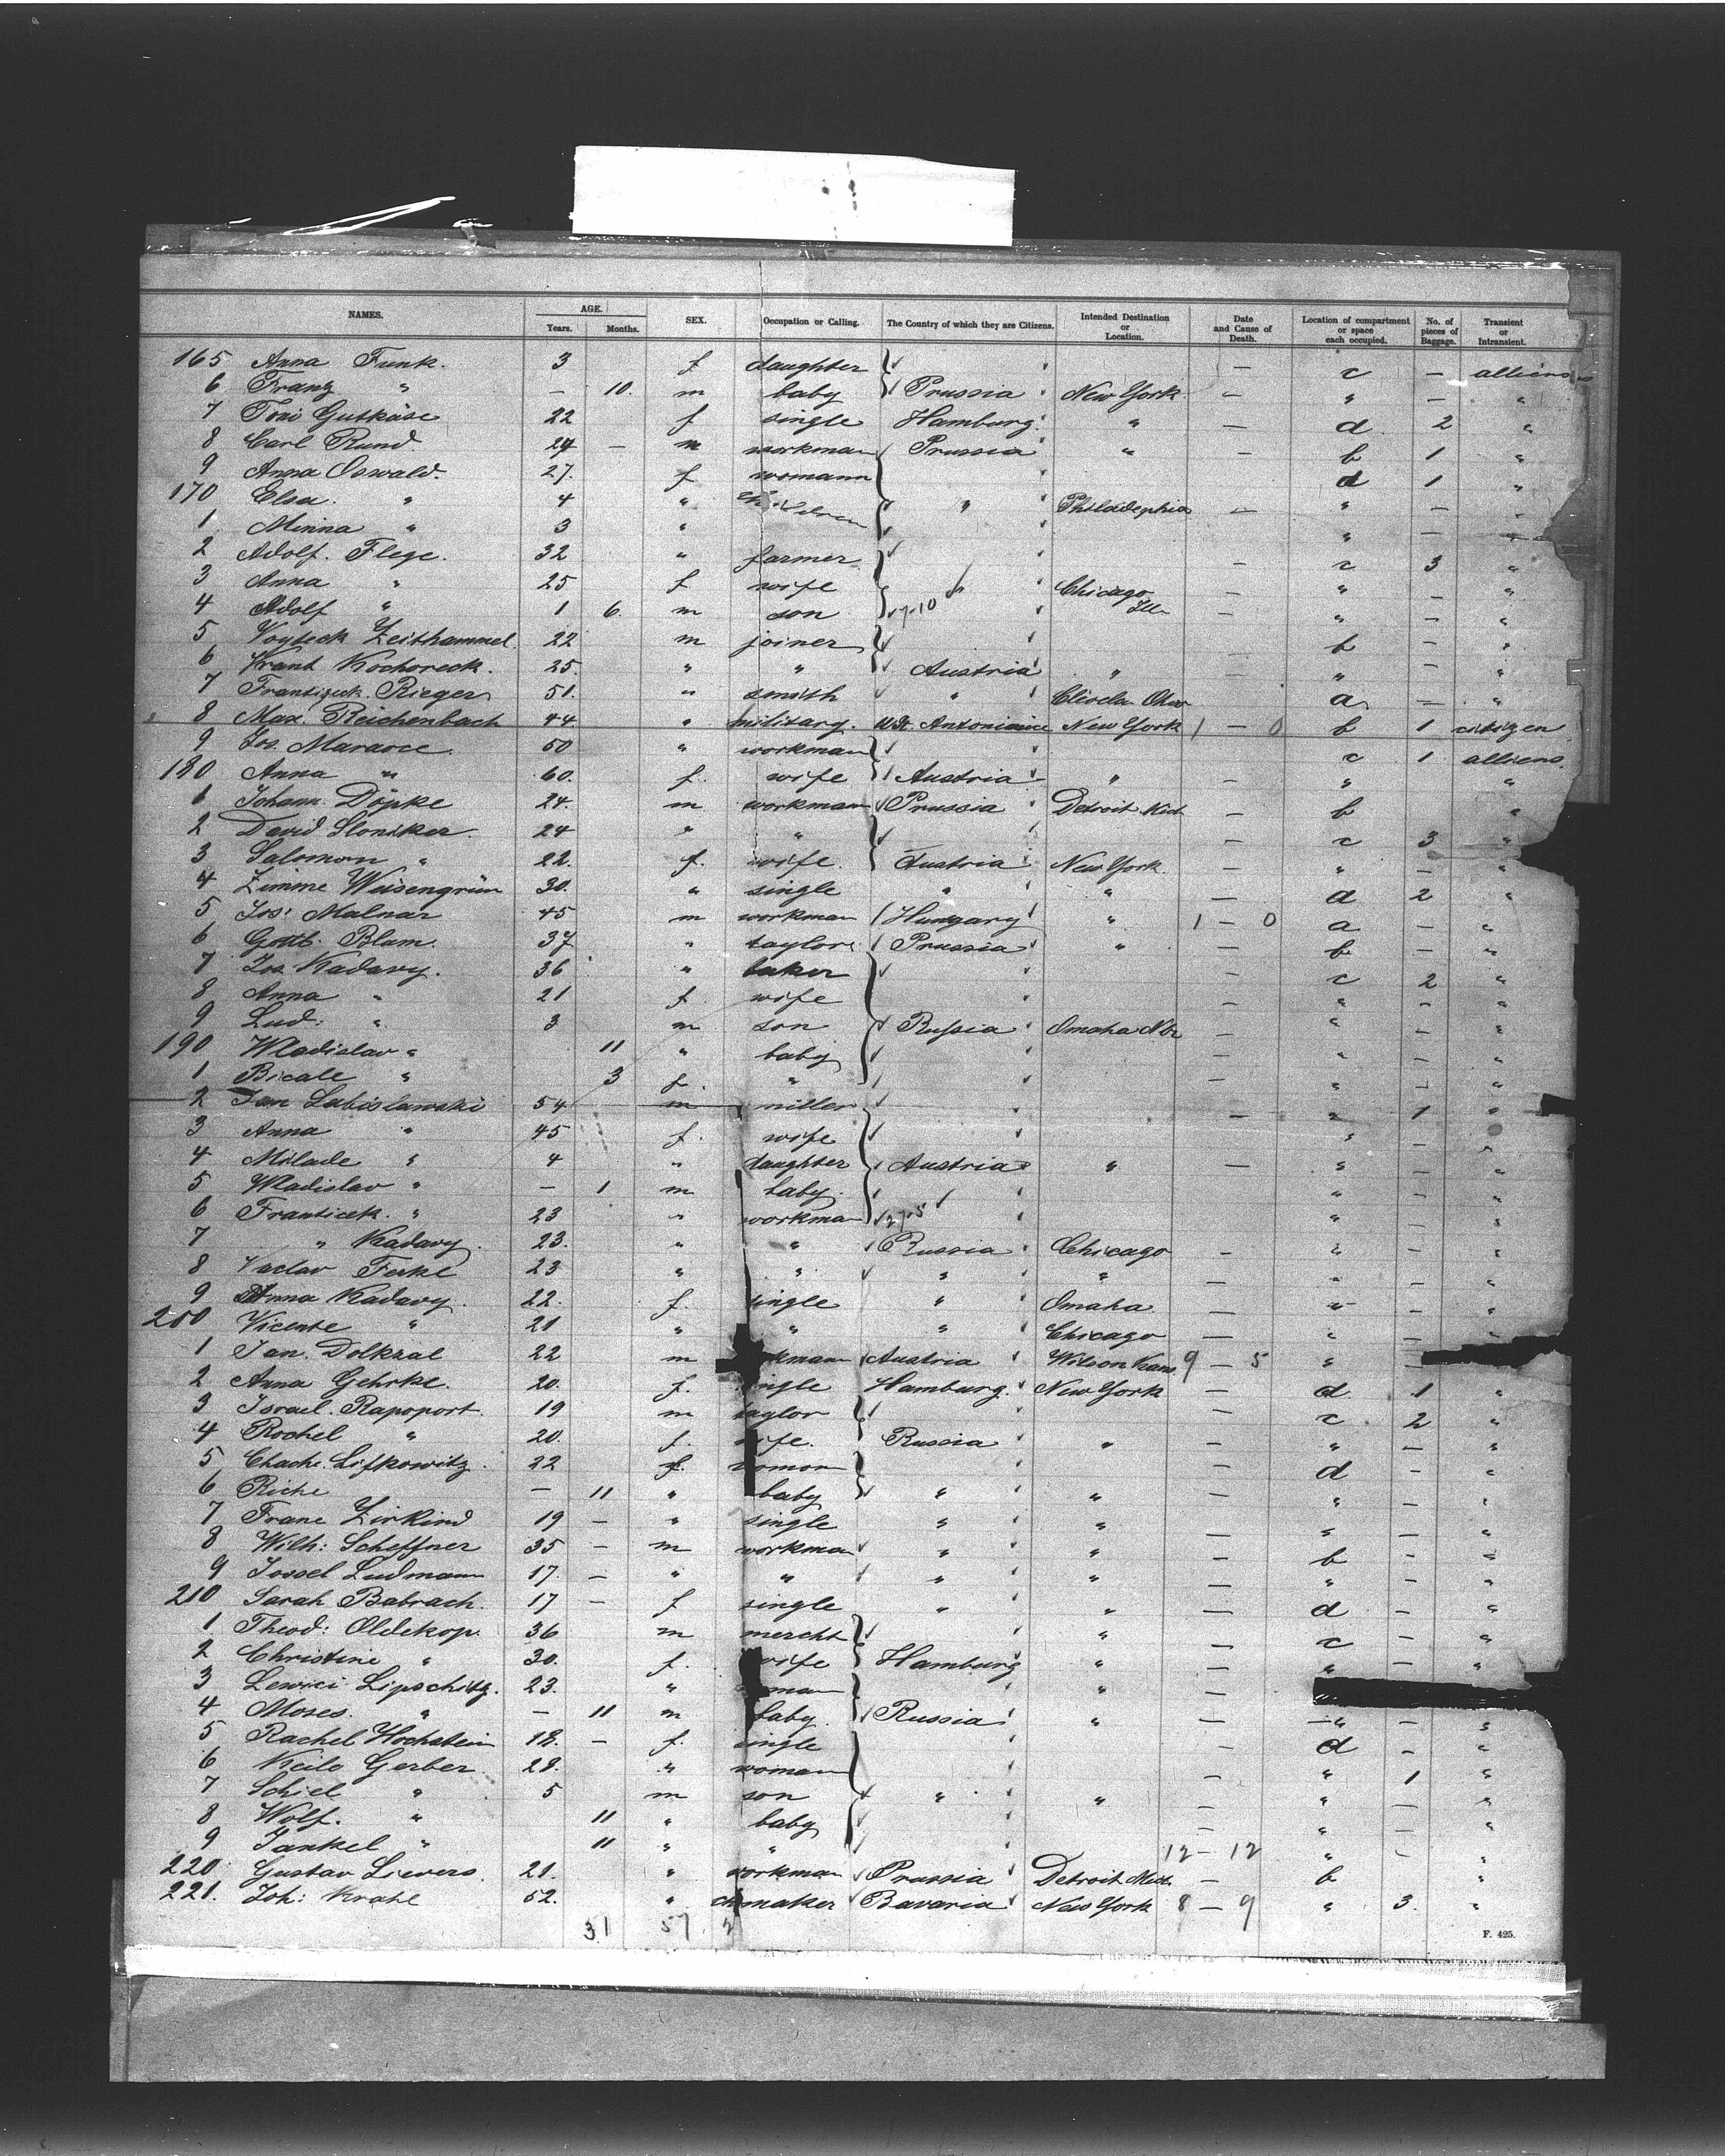 NAMES. AGE. Years. Months. SEX. Occupation or Calling. The Country of which they are Citizens. Intended Destination or Location. Date and Cause of Death. Location of compartment or space each occupied. No. of pieces of Baggage. Transient or Intransient.
165 Anna Funk. 3 f daughter — c — alliens
6 Franz " — 10. m baby Prussia New York — " — "
7 Toni Gutkäse 22 f single Hamburg " — d 2 "
8 Carl Rund. 24 — m workman Prussia " — b 1 "
9 Anna Oswald. 27. f womann d 1 "
170 Elsa. " 4 " " Philadephia — " — "
1 Minna " 3 " " — "
2 Adolf. Flege. 32 " farmer — c 3 "
3 Anna " 25 f wife " Chicago — " — "
4 Adolf " 1 6. m son Ill. — " — "
5 Voyteck Zeithammel 22 m joiner b — "
6 Kochoreck. 25. " " Austria " " — "
7 Rieger 51. " smith " a — "
8 Max. Reichenbach 44 " military. New York 1 — 0 b 1 citizen
9 Jos. 50 " workman c 1 alliens.
180 Anna " 60. f. wife Austria " — " "
1 Johann. Döpke 24. m workman Prussia Detroit — b "
2 David Sloniker 24 " " — c 3 "
3 Salomon " 22. f. wife. Austria New York. — " — "
4 Zimme Weisengrün 30. " single " " — d 2 "
5 Jos: Malnar 45 m workman Hungary " 1 — 0 a — "
6 Gottl. Blam. 37. " taylor Prussia " — b — "
7 Jos. Kadavy. 36 " baker — c 2 "
8 Anna " 21 f. wife — " — "
9 Lud: " 3 m son Russia Omaha — " — "
190 Wladislav " 11 " baby — " — "
1 Bicale " 3 f. " — " — "
2 Jan Labislawski 54 m miller — " 1 "
3 Anna " 45 f. wife " — "
4 Milade " 4 " daughter Austria " — " — "
5 Wladislav " — 1 m baby. " — "
6 Franticek. " 23 " workman " — "
7 " Kadavy. 23. " " Russia Chicago — " — "
8 Vaclav Ferkl 23 " " " " — " — "
9 Anna Kadavy. 22. f. single " Omaha — " — "
200 Vicente " 21 " " " Chicago — " — "
1 Jan. Dolkzal 22 m kmann Austria Wilson Kans 9 — 5 " —
2 Anna Gehrke. 20. f. ingle Hamburg. New York — d 1 "
3 Israel. Rapoport. 19 m taylor — c 2 "
4 Rochel " 20. f. ife. Russia " — " — "
5 Chache. Lifkowitz. 22 f. — d — "
6 Riche — 11 " baby " " — " — "
7 Frane Zirkind 19 — " single " " — " — "
8 Wilh: Scheffner 35 — m workman " " — b — "
9 Jossel Ludmann 17. — " " " " — " — "
210 Sarah Babrach. 17 — f single " " — d — "
1 Theod: Oldekop. 36 m mercht " — c — "
2 Christine " 30. f. wife Hamburg " — " — "
3 Lewici Lipschitz. 23. " man " —
4 Moses. " — 11 m baby. Russia " — " — "
5 Rachel Hochstein 18. — f. ingle — d — "
6 Keile Gerber 28. " woman — " 1 "
7 Schiel " 5 m son " " — " — "
8 Wolf. " 11 " baby — " — "
9 Jankel " 11 " " 12 — 12 " — "
220 Gustav Lievers. 21. " workman Prussia Detroit Mich. — b "
221. Joh: Krahl 52. " maker Bavaria New York 8 — 9 " 3. "
31 57 2
F. 425.